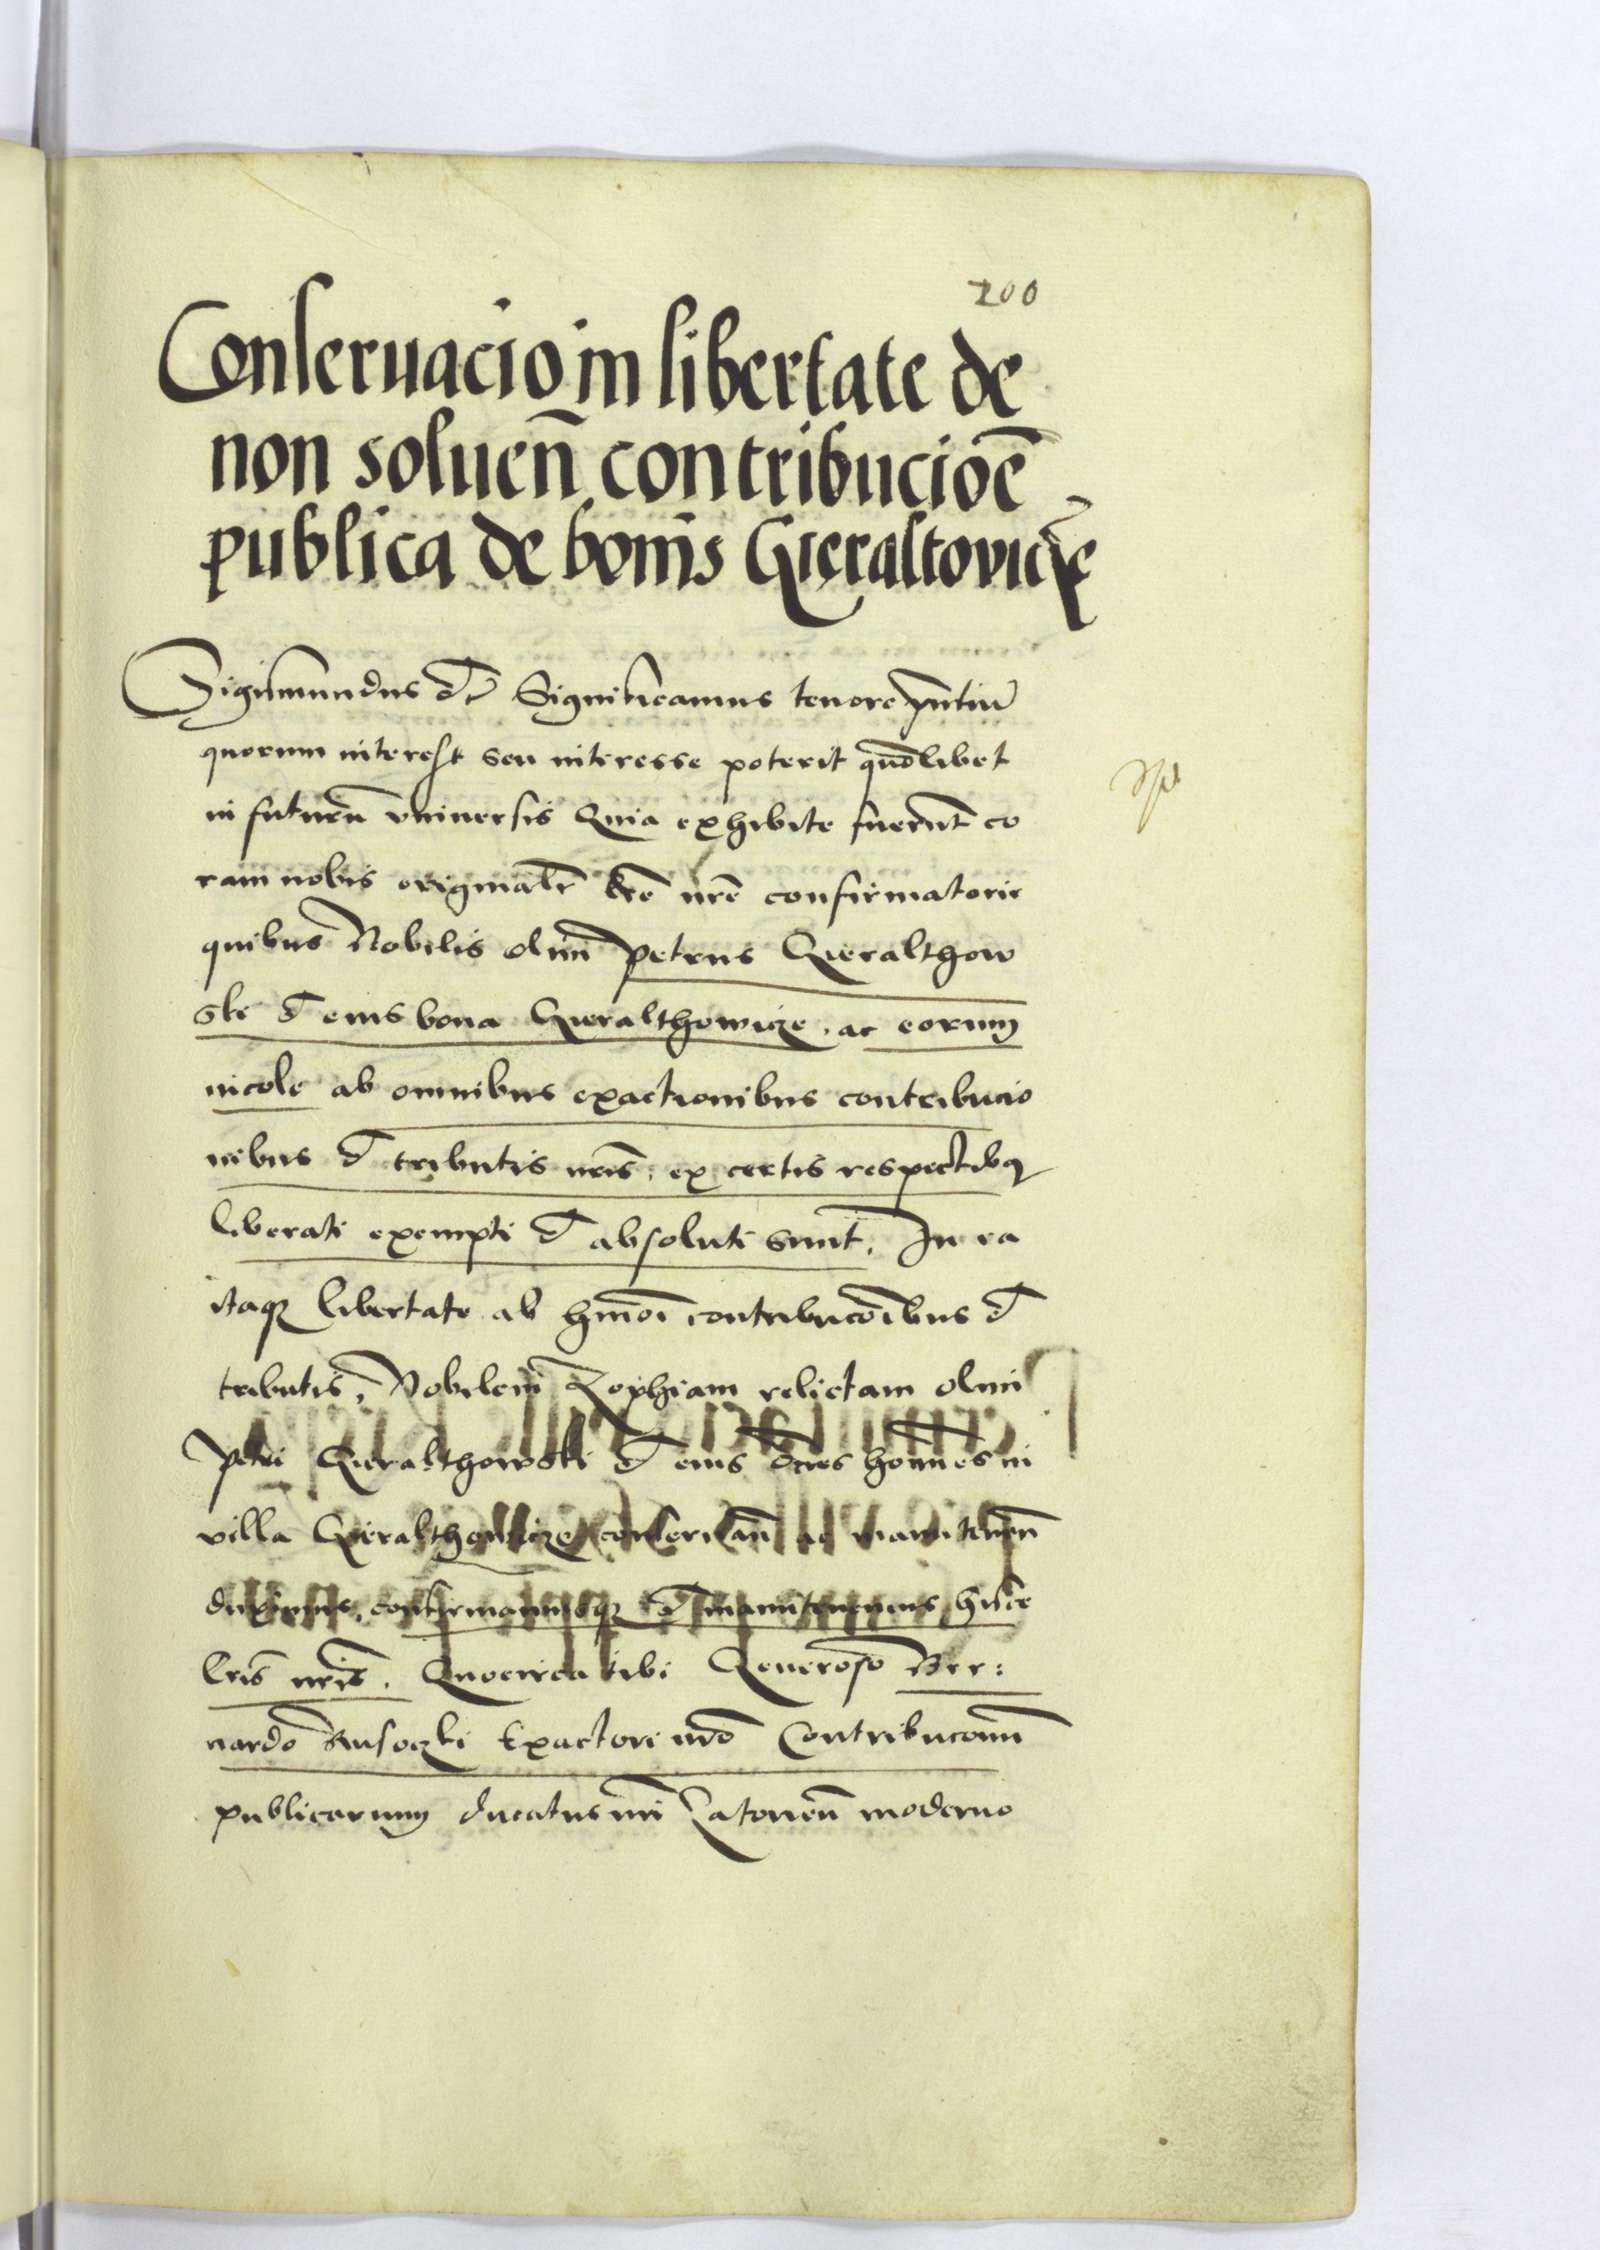 200
Conseruacio in libertate de
non soluen̄ contribucioē
publica de bonis Gieraltovicze
Sigismundus etc̄ Significamus tenore pn̄tiū
quorum interest seu interesse poterit quōlibet
in futurū vniuersis Quia exhibite fuerūt co
ram nobis originales lrē nrē confirmatorie
quibus Nobilis olim Petrus Gieralthow
ski et eius bona Gieralthowicze, ac eorum
incole ab omnibus exactionibus contribucio
nibus et tributis nrīs, ex certis respectibq
liberati exempti et absoluti sunt. In ea
itaqz libertate ab hmōi contribucōibus et
tributis, Nobilem Zophiam relictam olim
Petri Gieralthowski et eius ōnes hoīnes in
villa Gieralthowicze conseruan̄ ac manutenen̄
duximus, confirmamusqz et manutenemus hisce
lrīs nrīs. Quocirca tibi Generoso Ber:
nardo Exactori nrō Contribuconū
publicarum ducatus nrī Zatorien̄ moderno